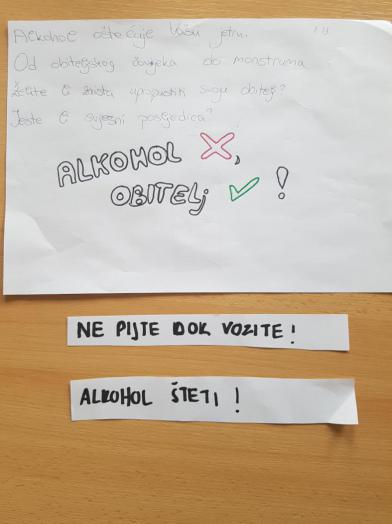 Alkohol oštećuje Vašu jetru.
Od obiteljskog čovjeka do monstruma
Želite li zaista upropastiti svoju obitelj?
Jeste li svjesni posljedica?
ALKOHOL X,
OBITELJ ✓ !
NE PIJTE DOK VOZITE!
ALKOHOL ŠTETI!